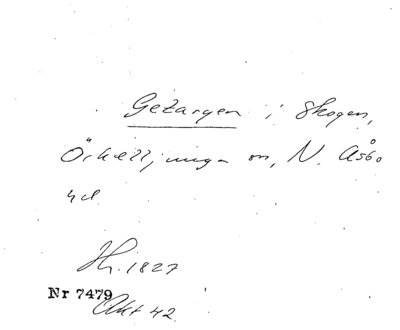 Getaryen i Skogen,
Örkelljunga sn, N. Åsbo
hd
Hr. 1827
Nr 7479
Akt 42